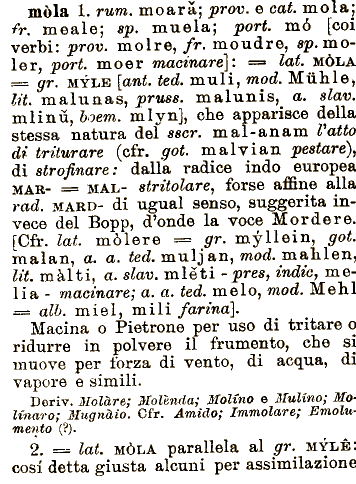 mòla 1. rum. moară; prov. e cat. mola;
fr. meale; sp. muela; port. mó [coi
verbi: prov. molre, fr. moudre, sp. mo-
ler, port. moer macinare]: = lat. MÒLA
= gr. MÝLE [ant. ted. muli, mod. Mühle,
lit. malunas, pruss. malunis, a. slav.
mlinŭ, boem. mlyn], che apparisce della
stessa natura del sscr. mal-anam l'atto
di triturare (cfr. got. malvian pestare),
di strofinare: dalla radice indo europea
MAR- = MAL- stritolare, forse affine alla
rad. MARD- di ugual senso, suggerita in-
vece del Bopp, d'onde la voce Mordere.
[Cfr. lat. mòlere = gr. mýllein, got.
malan, a. a. ted. muljan, mod. mahlen,
lit. màlti, a. slav. mlěti - pres, indic, me-
lia - macinare; a. a. ted. melo, mod. Mehl
= alb. miel, mili farina].
Macina o Pietrone per uso di tritare o
ridurre in polvere il frumento, che si
muove per forza di vento, di acqua, di
vapore e simili.
Deriv. Molàre; Molènda; Molíno e Mulíno; Mo-
lináro; Mugnàio. Cfr. Amido; Immolare; Emolu-
mento (?).
2. = lat. MÒLA parallela al gr. MÝLÊ:
cosí detta giusta alcuni per assimilazione